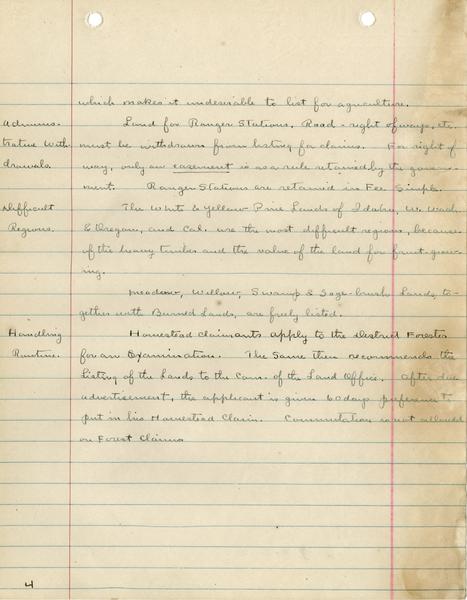 which makes it undesirable to list for agriculture.
Adminis- Land for Ranger Stations, Road - right of ways, etc.
trative With- must be withdrawn from listing for claims. For right of
drawals. way, only an easement is as a rule retained by the govern-
ment. Ranger Stations are retained in Fee Simple.
Difficult The White & Yellow Pine Lands of Idaho, W. Wash
Regions. & Oregon, and Cal. are the most difficult regions, because
of the heavy timber and the value of the land for fruit grow-
ing.
Meadow, Willow, Swamp & Sage-brush Lands, to-
gether with Burned Lands, are freely listed.
Handling Homestead claimants apply to the District Forester
Routine. for an Examination. The Same then recommends the
Listing of the Lands to the Com. of the Land Office. After due
advertisement, the applicant is given 60 days preference to
put in his Homestead Claim. Commutation is not allowed
on Forest Claims
4